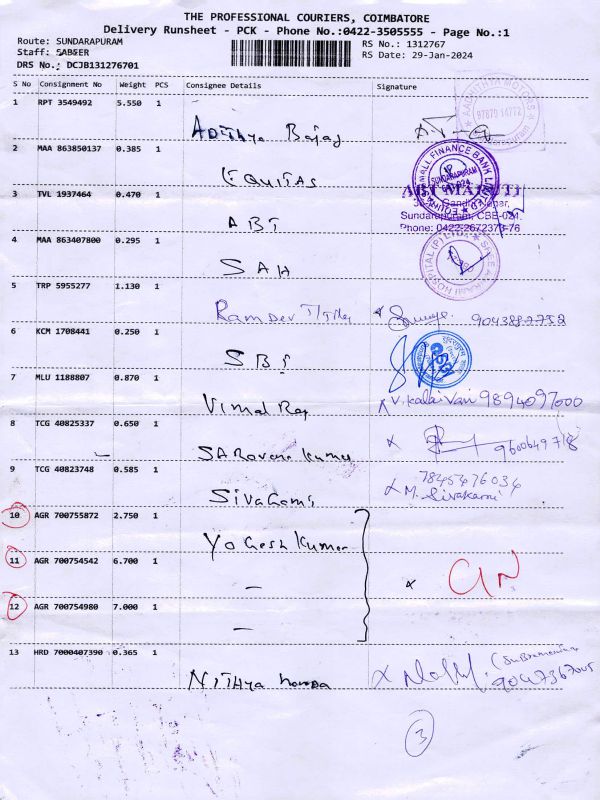 THE PROFESSIONAL COURIERS, COIMBATORE
Delivery Runsheet - PCK - Phone No.:0422-3505555 - Page No.:1
Route: SUNDARAPURAM
RS No.: 1312767
Staff: SABEER
RS Date: 29-Jan-2024
DRS No.: DCJB131276701
S No Consignment No Weight PCS Consignee Details Signature
1 RPT 3549492 5.550 1
ADithya Bajaj
2 MAA 863850137 0.385 1
EQUITAS
SUNDARAPURAM
3 TVL 1937464 0.470 1
ABT MARUTI
Gandhi Nagar,
Sundarapuram, CBE-024.
ABT
Phone: 0422-2672373-76
4 MAA 863407800 0.295 1
SAH
5 TRP 5955277 1.130 1
RamDev
9043882752
6 KCM 1708441 0.250 1
SBI
7 MLU 1188807 0.870 1
Vimal Raj
V. Kalaivani 9894097000
8 TCG 40825337 0.650 1
SARavana Kumar
9600649718
9 TCG 40823748 0.585 1
7845476034
SivaGami
M. Sivakami
10 AGR 700755872 2.750 1
YoGesh Kumar
11 AGR 700754542 6.700 1
-
12 AGR 700754980 7.000 1
-
13 HRD 7000407390 0.365 1
NITHya
3